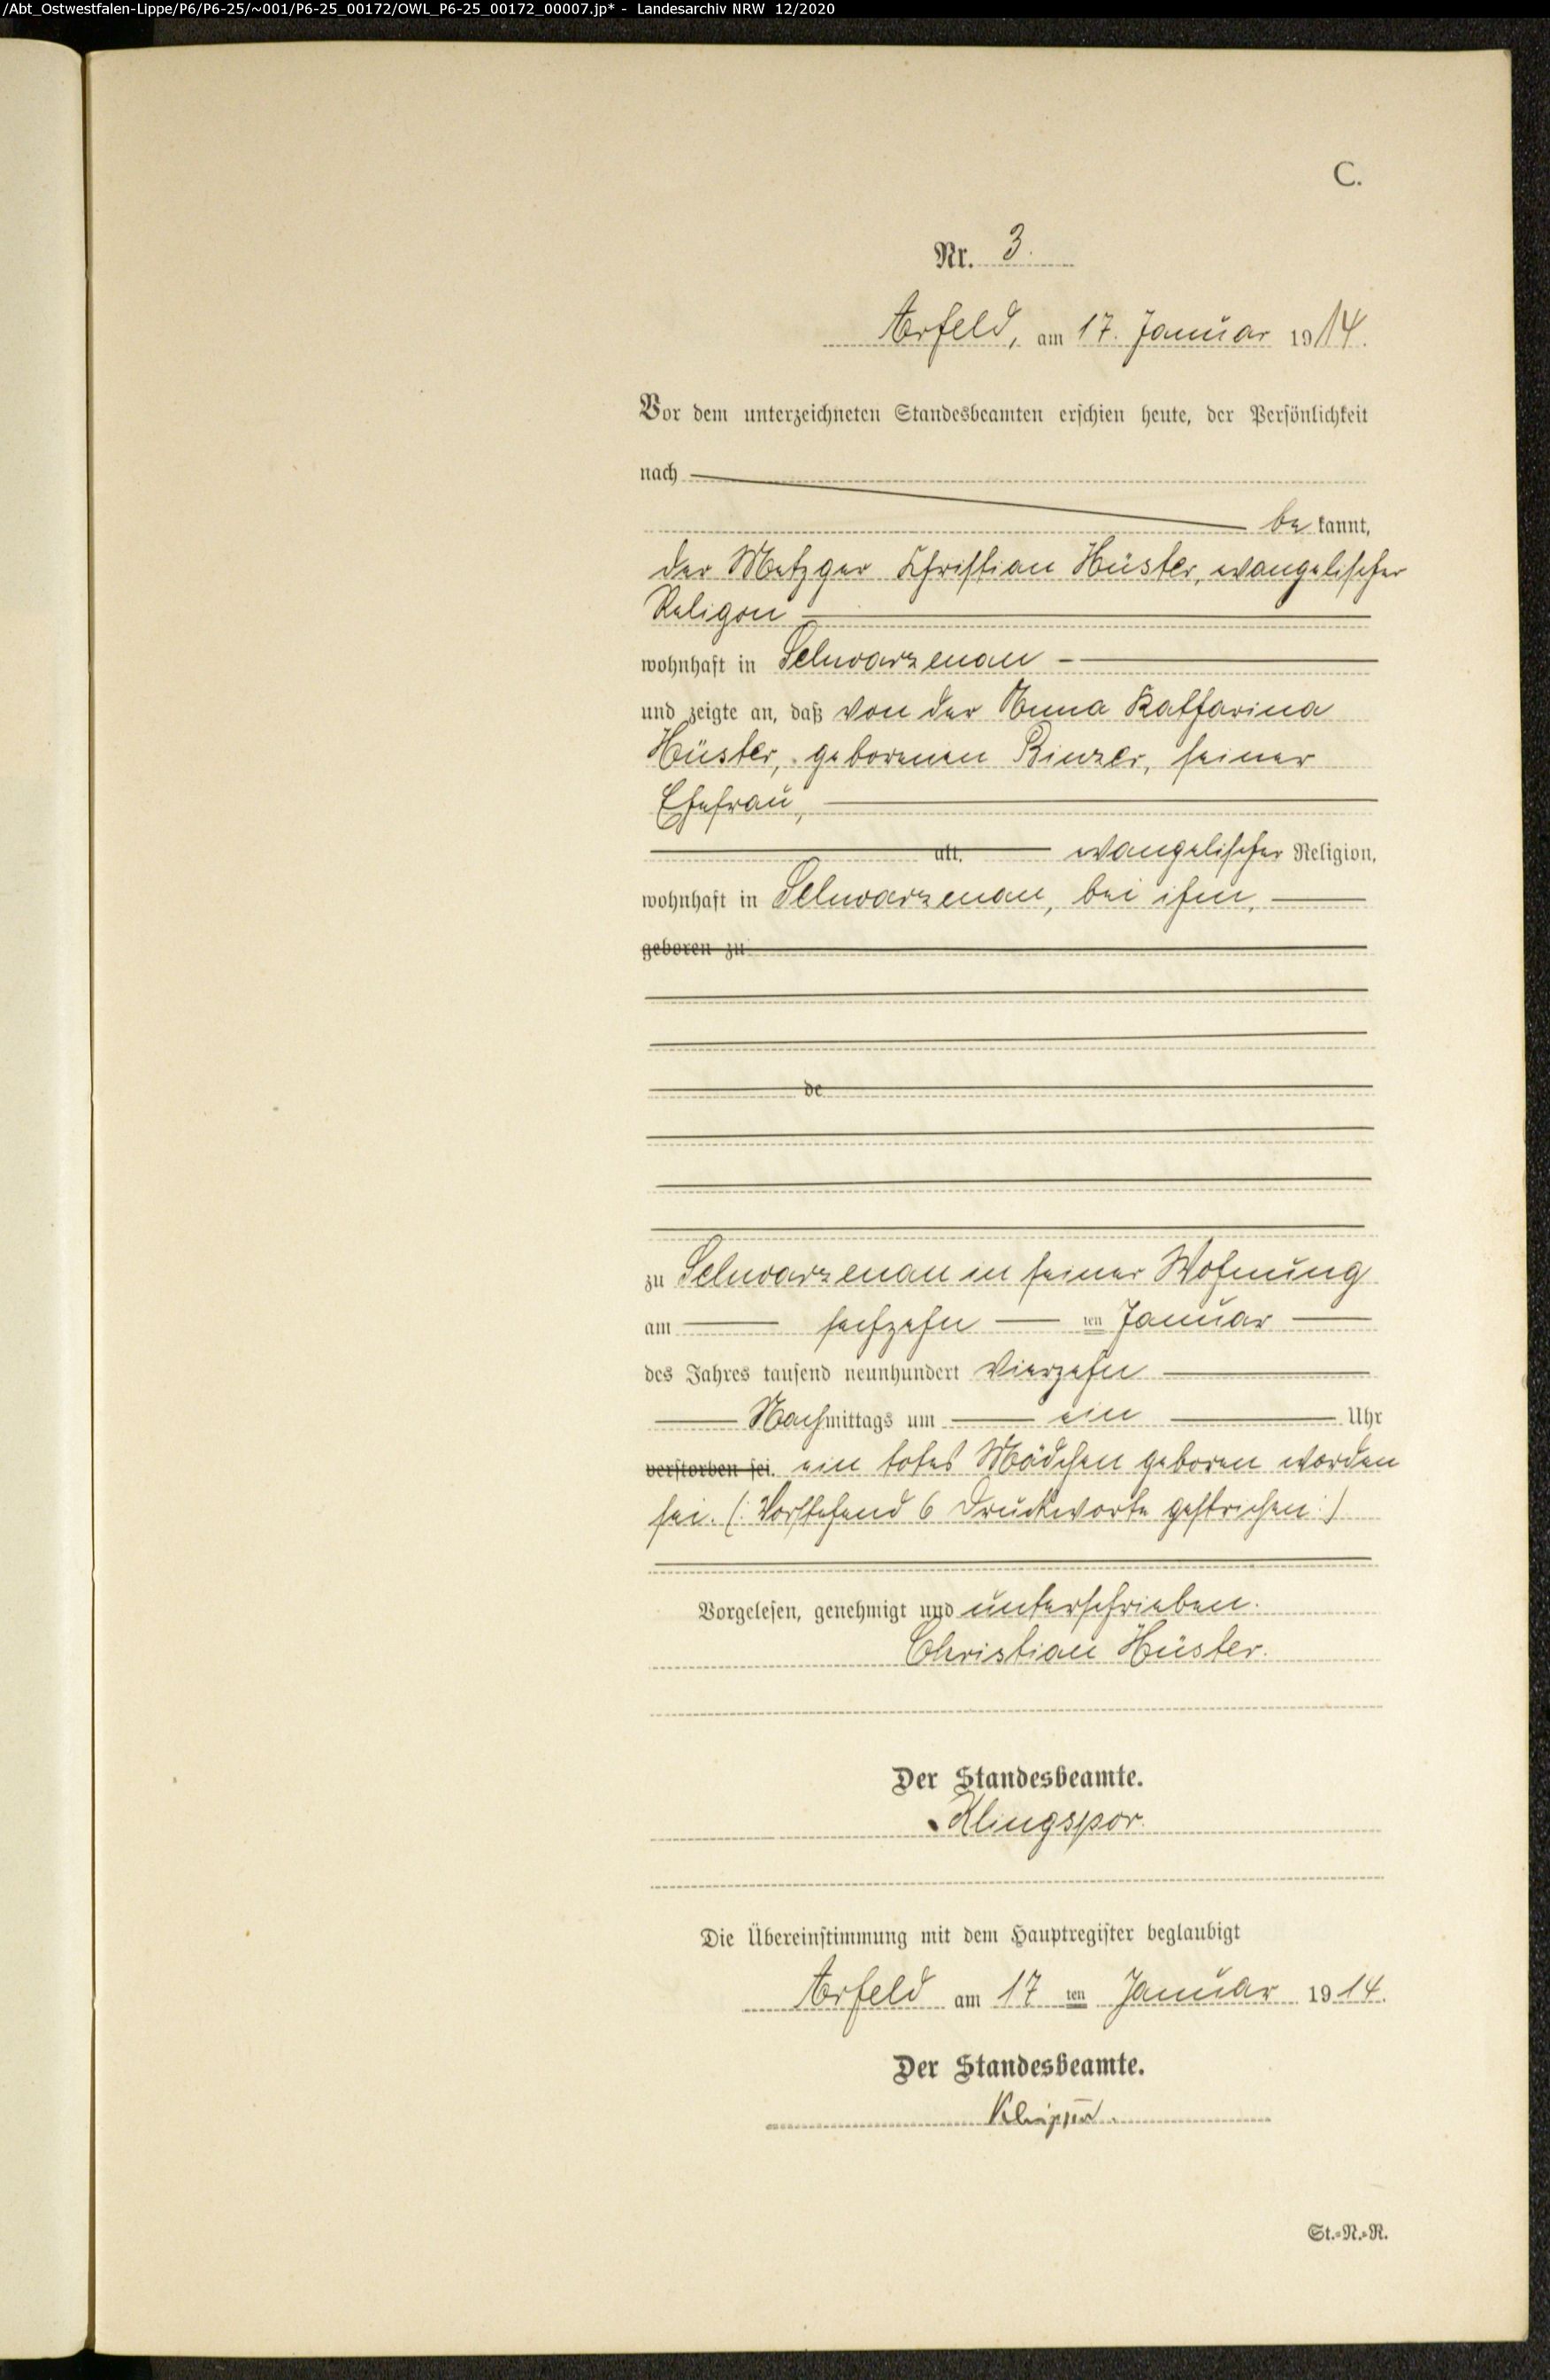 /Abt_Ostwestfalen-Lippe/P6/P6-25/~001/P6-25_00172/OWL_P6-25_00172_00007.jp* - Landesarchiv NRW 12/2020
C.
Nr. 3.
Arfeld, am 17. Januar 1914.
Vor dem unterzeichneten Standesbeamten erschien heute, der Persönlichkeit
nach
bekannt,
der Metzger Christian Hüster, evangelischer
Religon
wohnhaft in Schwarzenau
und zeigte an, daß von der Anna Katharina
Hüster, geborenen Binzer, seiner
Ehefrau,
alt, evangelischer Religion,
wohnhaft in Schwarzenau, bei ihm,
geboren zu
de
zu Schwarzenau in seiner Wohnung
am sechzehn ten Januar
des Jahres tausend neunhundert vierzehn
Nachmittags um ein Uhr
verstorben sei. ein totes Mädchen geboren worden
sei. (: Vorstehend 6 Druckworte gestrichen :)
Vorgelesen, genehmigt und unterschrieben.
Christian Hüster.
Der Standesbeamte.
Klingspor.
Die Übereinstimmung mit dem Hauptregister beglaubigt
Arfeld am 17 ten Januar 1914.
Der Standesbeamte.
St.-N.-R.